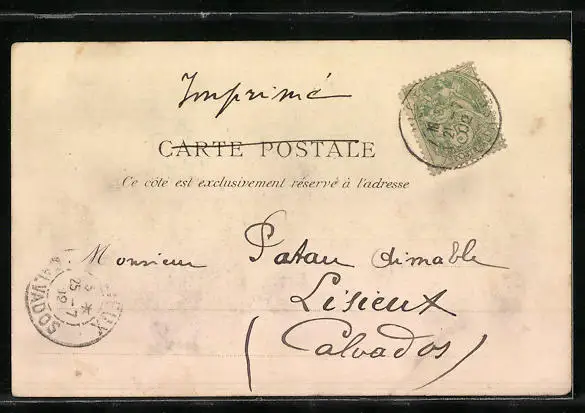 Imprimé
CARTE POSTALE
Ce côté est exclusivement réservé à l'adresse
Monsieur Patau dimable
Lisieux
(Calvados)
CALVADOS
25 - 7